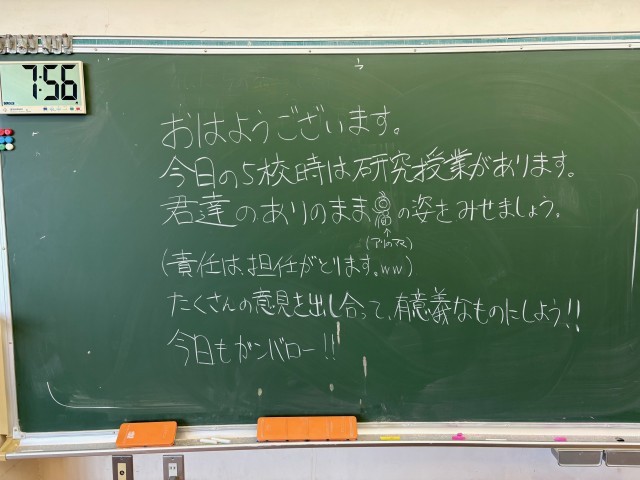 7:56
おはようございます。
今日の5校時は研究授業があります。
君達のありのままの姿をみせましょう。
↑
(責任は、担任がとります。ww)
たくさんの意見を出し合って、有意義なものにしよう!!
今日もガンバロー!!